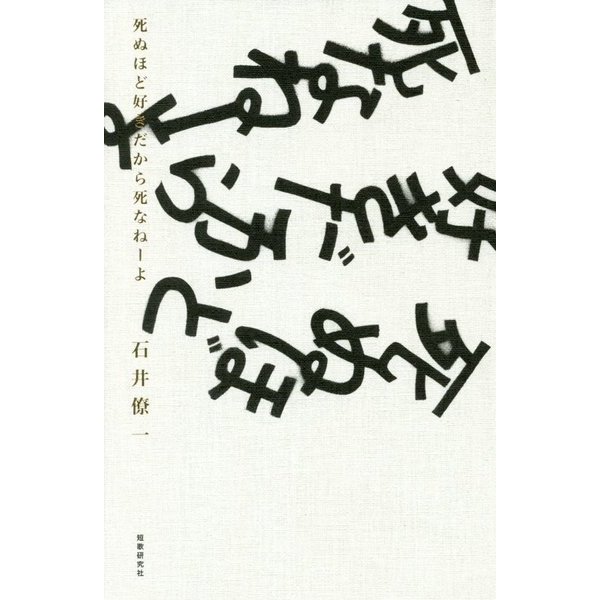 死ぬほど
好きだから
死なねーよ
死ぬほど好きだから死なねーよ
石井僚一
短歌研究社